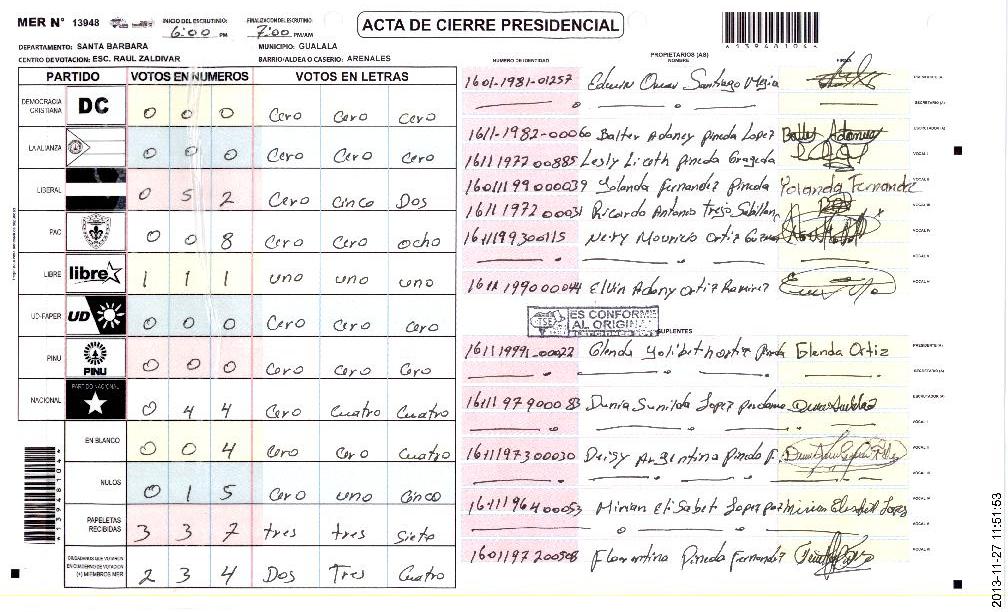 MER N° 13948
INICIO DEL ESCRUTINIO: 6:00 PM
FINALIZACION DEL ESCRUTINIO: 7:00 PM/AM
ACTA DE CIERRE PRESIDENCIAL
DEPARTAMENTO: SANTA BARBARA
MUNICIPIO: GUALALA
CENTRO DE VOTACION: ESC. RAUL ZALDIVAR
BARRIO/ALDEA O CASERIO: ARENALES
PARTIDO VOTOS EN NUMEROS VOTOS EN LETRAS
DEMOCRACIA CRISTIANA DC 0 0 0 Cero Cero Cero
LA ALIANZA 0 0 0 Cero Cero Cero
LIBERAL 0 5 2 Cero Cinco Dos
PAC 0 0 8 Cero Cero ocho
LIBRE libre 1 1 1 uno uno uno
UD-FAPER UD 0 0 0 Cero Cero Cero
PINU PINU 0 0 0 Cero Cero Cero
NACIONAL PARTIDO NACIONAL 0 4 4 Cero Cuatro Cuatro
EN BLANCO 0 0 4 Cero Cero Cuatro
NULOS 0 1 5 Cero uno Cinco
PAPELETAS RECIBIDAS 3 3 7 tres tres Siete
CIUDADANOS QUE VOTARON EN CUADERNO DE VOTACION (+) MIEMBROS MER 2 3 4 Dos Tres Cuatro
PROPIETARIOS (AS)
NUMERO DE IDENTIDAD NOMBRE FIRMA
1601-1981-01257 Edwin Omar Santiago Mejia
1611-1982-00060 Balter Adaney Pineda Lopez
1611 1972 00885 Lesly Liceth Pineda
1601199000039 Yolanda Fernandez Pineda Yolanda Fernandez
1611 1972 00031 Ricardo Antonio Trejo Sabillon
1611199300115 Nery Mauricio Ortiz
1611 199000044 Elvin Adany Ortiz Ramirez
TSE ES CONFORME AL ORIGINAL
SUPLENTES
16111991-00022 Glenda Yolibeth Ortiz Pineda Glenda Ortiz
1611197900083 Dunia Sunilda Lopez
1611197300030 Deisy Argentina Pineda F.
1611196400053 Mirian Elisabet Lopez Paz Mirian Elisabet Lopez
1601197200508 Florentina Pineda Fernandez
*1394810*
2013-11-27 11:51:53